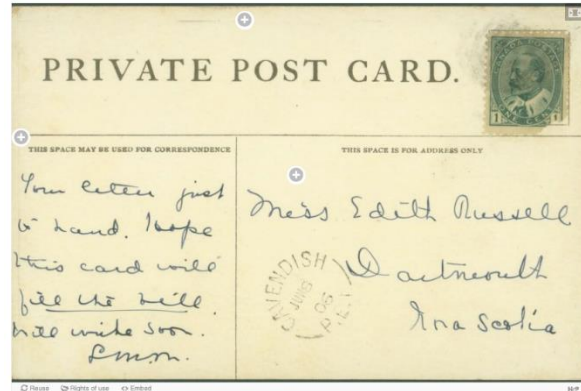 PRIVATE POST CARD.
CANADA POSTAGE
1 1
ONE CENT
THIS SPACE MAY BE USED FOR CORRESPONDENCE
Your letter just
to hand. Hope
this card will
fill the bill.
Will write soon.
L.M.M.
THIS SPACE IS FOR ADDRESS ONLY
Miss Edith Russell
Dartmouth
Nova Scotia
CAVENDISH
06
P.E.I.
Reuse Rights of use Embed